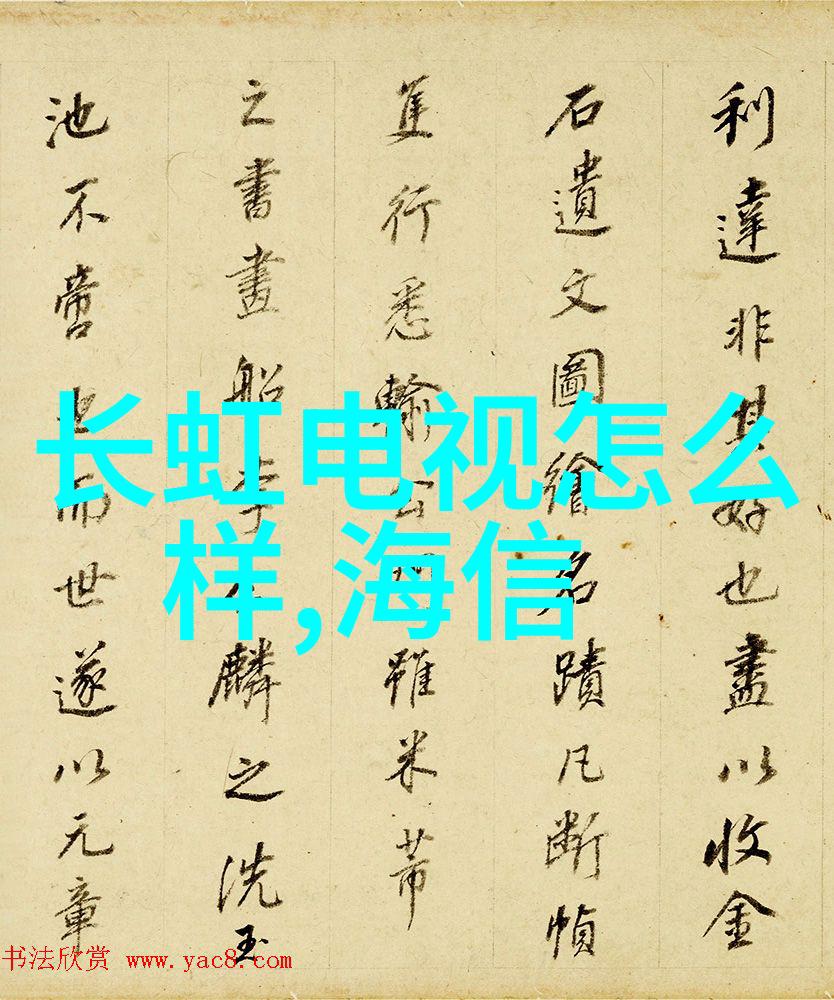 利達非其好也盡以收金
石遺文圖繪名蹟凡断幀
隻行悉輸公雖米芾
之書畫船李公麟之洗玉
池不啻也而世遂以元章
长虹电视怎么
样,海信
书法欣赏 www.yac8.com